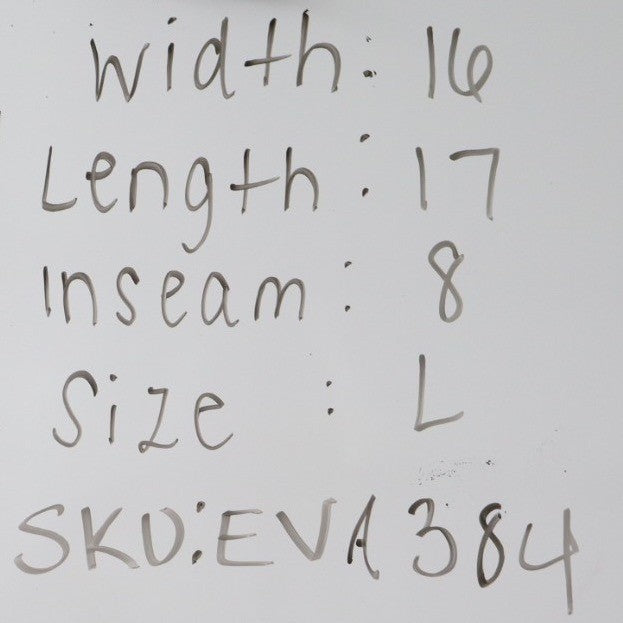 Width: 16
Length: 17
Inseam: 8
Size : L
SKU:EVA384